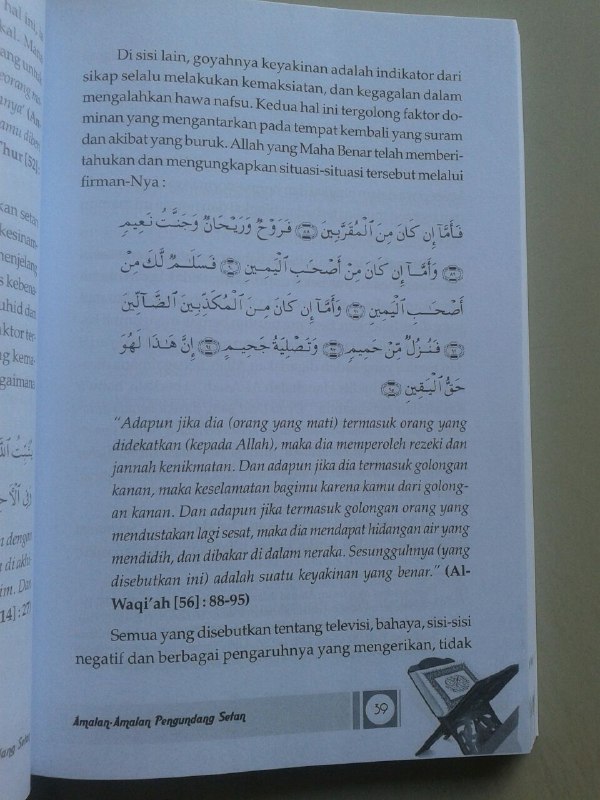 Di sisi lain, goyahnya keyakinan adalah indikator dari
sikap selalu melakukan kemaksiatan, dan kegagalan dalam
mengalahkan hawa nafsu. Kedua hal ini tergolong faktor do-
minan yang mengantarkan pada tempat kembali yang suram
dan akibat yang buruk. Allah yang Maha Benar telah memberi-
tahukan dan mengungkapkan situasi-situasi tersebut melalui
firman-Nya :
فَأَمَّآ إِن كَانَ مِنَ ٱلْمُقَرَّبِينَ ﴿٨٨﴾ فَرَوْحٌ وَرَيْحَانٌ وَجَنَّتُ نَعِيمٍ
﴿٨٩﴾ وَأَمَّآ إِن كَانَ مِنْ أَصْحَـٰبِ ٱلْيَمِينِ ﴿٩٠﴾ فَسَلَـٰمٌ لَّكَ مِنْ
أَصْحَـٰبِ ٱلْيَمِينِ ﴿٩١﴾ وَأَمَّآ إِن كَانَ مِنَ ٱلْمُكَذِّبِينَ ٱلضَّآلِّينَ
﴿٩٢﴾ فَنُزُلٌ مِّنْ حَمِيمٍ ﴿٩٣﴾ وَتَصْلِيَةُ جَحِيمٍ ﴿٩٤﴾ إِنَّ هَـٰذَا لَهُوَ
حَقُّ ٱلْيَقِينِ ﴿٩٥﴾
"Adapun jika dia (orang yang mati) termasuk orang yang
didekatkan (kepada Allah), maka dia memperoleh rezeki dan
jannah kenikmatan. Dan adapun jika dia termasuk golongan
kanan, maka keselamatan bagimu karena kamu dari golong-
an kanan. Dan adapun jika termasuk golongan orang yang
mendustakan lagi sesat, maka dia mendapat hidangan air yang
mendidih, dan dibakar di dalam neraka. Sesungguhnya (yang
disebutkan ini) adalah suatu keyakinan yang benar." (Al-
Waqi'ah [56] : 88-95)
Semua yang disebutkan tentang televisi, bahaya, sisi-sisi
negatif dan berbagai pengaruhnya yang mengerikan, tidak
Amalan-Amalan Pengundang Setan
39